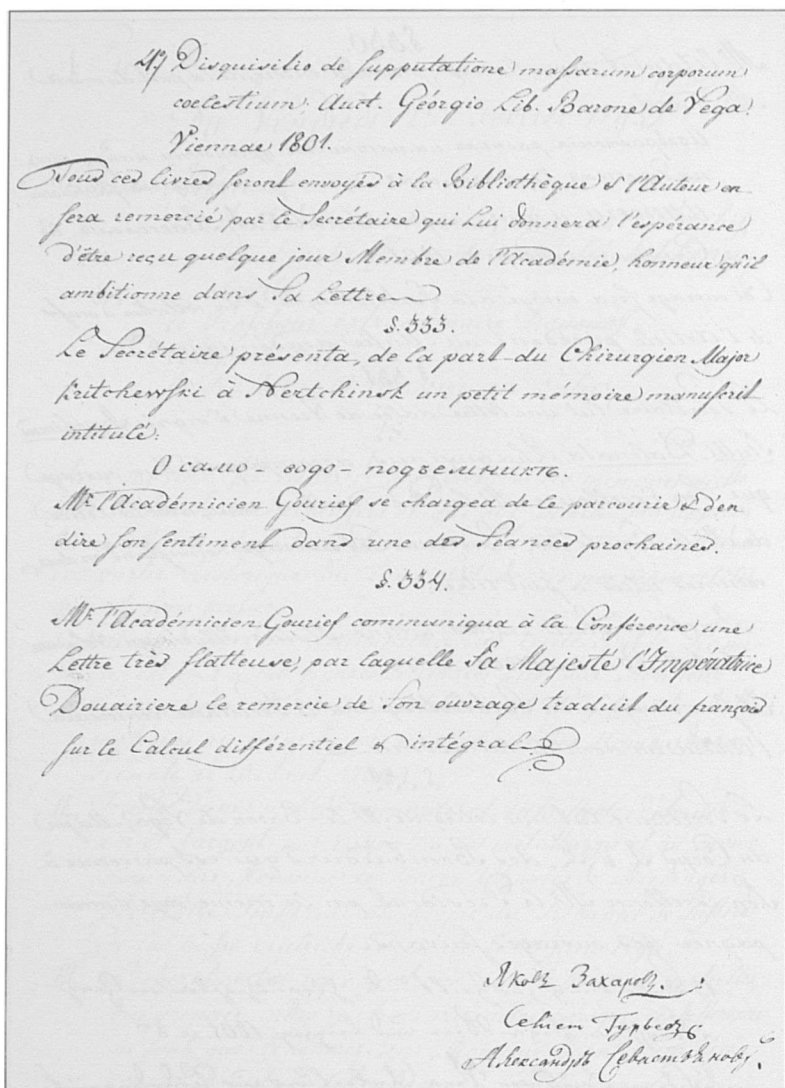 4.) Disquisitio de supputatione massarum corporum
coelestium. Auct. Géorgio Lib. Barone de Vega.
Viennae 1801.
Tous ces livres seront envoyés à la Bibliothèque & l'Auteur en
sera remercié par le Secrétaire qui Lui donnera l'espérance
d'être reçu quelque jour Membre de l'Académie, honneur qu'il
ambitionne dans Sa Lettre
§. 333.
Le Secrétaire présenta, de la part du Chirurgien Major
Kritchewski à Nertchinsk un petit mémoire manuscrit
intitulé:
О само-водо-подъемникѣ.
Mr. l'Académicien Gourief se chargea de le parcourir & d'en
dire son sentiment dans une des Séances prochaines.
§. 334.
Mr. l'Académicien Gourief communiqua à la Conférence une
Lettre très flatteuse, par laquelle Sa Majesté l'Impératrice
Douairiere le remercie de Son ouvrage traduit du françois
sur le Calcul différentiel & intégral.
Яковъ Захаровъ.
Семенъ Гурьевъ
Александръ Севастьяновъ.